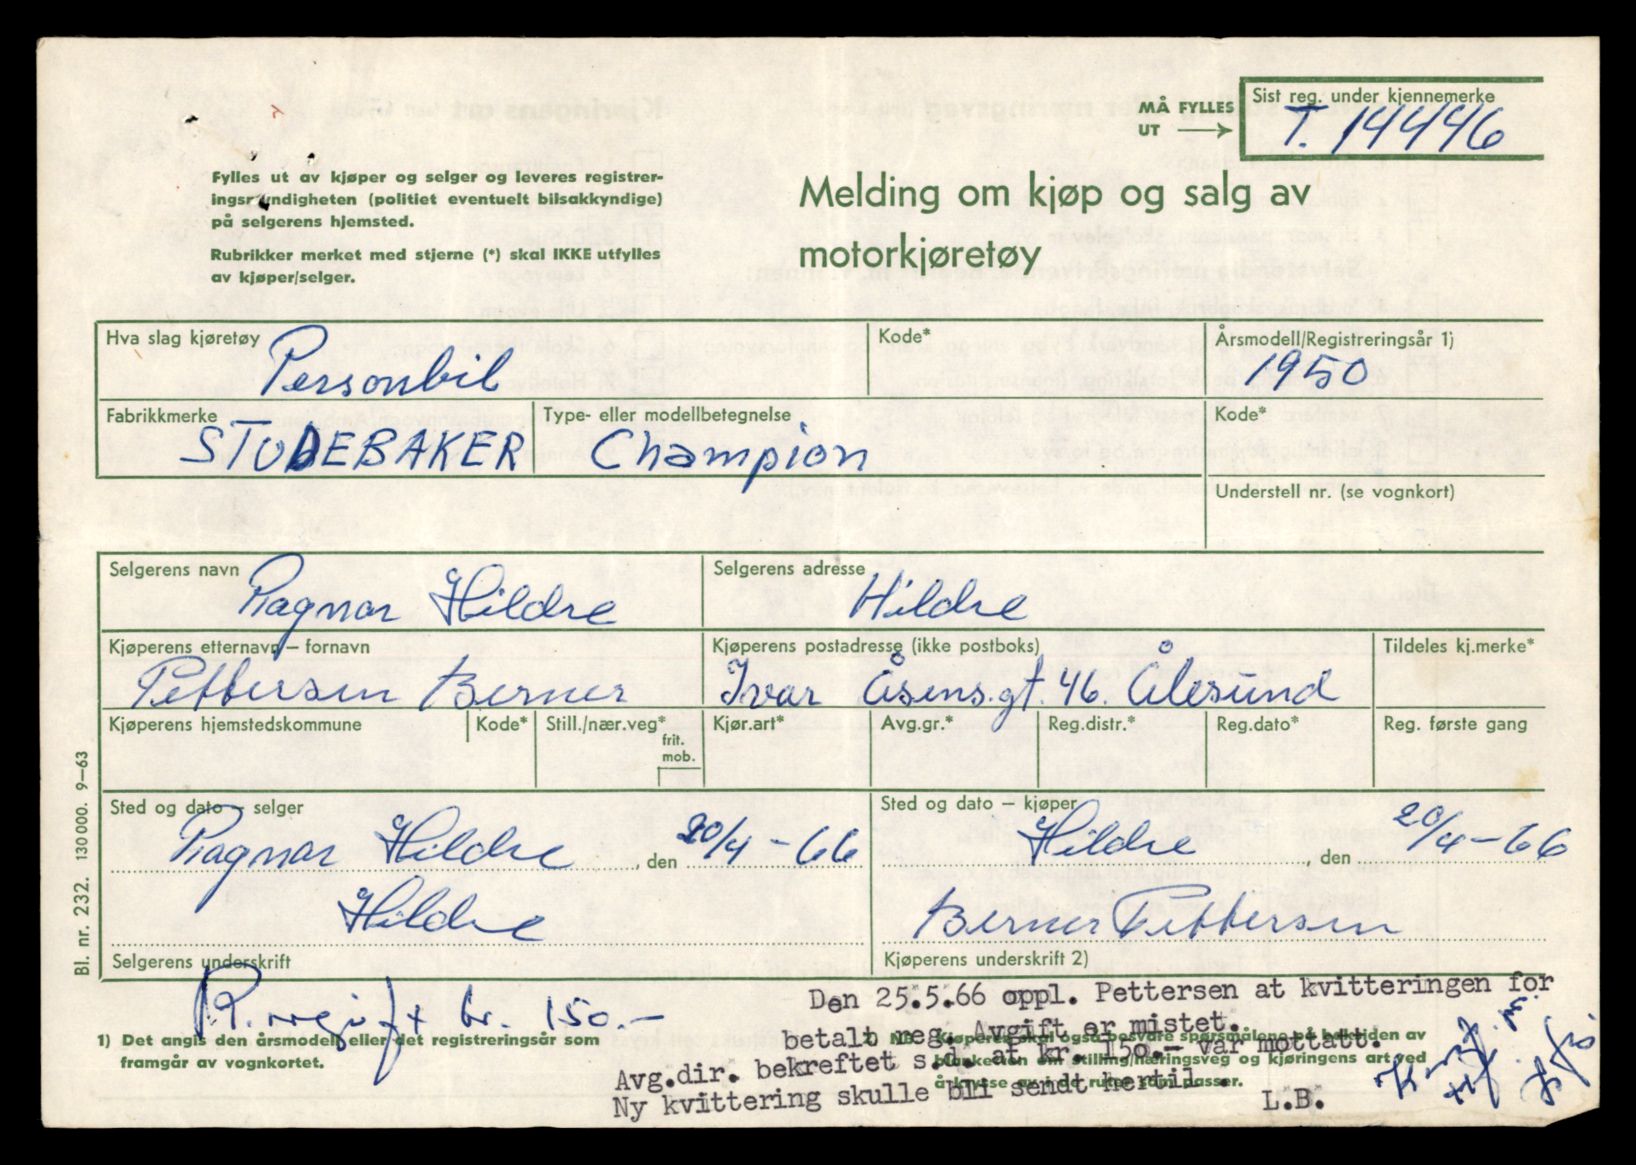 MÅ FYLLES
UT
Sist reg. under kjennemerke
T. 14446
Fylles ut av kjøper og selger og leveres registrer-
ingsmyndigheten (politiet eventuelt bilsakkyndige)
på selgerens hjemsted.
Rubrikker merket med stjerne (*) skal IKKE utfylles
av kjøper/selger.
Melding om kjøp og salg av
motorkjøretøy
Hva slag kjøretøy
Personbil
Kode*
Årsmodell/Registreringsår 1)
1950
Fabrikkmerke
STUDEBAKER
Type- eller modellbetegnelse
Champion
Kode*
Understell nr. (se vognkort)
Selgerens navn
Ragnar Hildre
Selgerens adresse
Hildre
Kjøperens etternavn – fornavn
Pettersen Berner
Kjøperens postadresse (ikke postboks)
Ivar Åsens.gt. 46. Ålesund
Tildeles kj.merke*
Kjøperens hjemstedskommune
Kode*
Still./nær.veg*
frit.
mob.
Kjør.art*
Avg.gr.*
Reg.distr.*
Reg.dato*
Reg. første gang
Sted og dato – selger
Ragnar Hildre, den 20/4 - 66
Hildre
Selgerens underskrift
Sted og dato – kjøper
Hildre, den 20/4 - 66
Berner Pettersen
Kjøperens underskrift 2)
Bl. nr. 232. 130 000. 9–63
kr. 150.-
1) Det angis den årsmodell eller det registreringsår som
framgår av vognkortet.
2) NB. Kjøperen skal også besvare spørsmålene på baksiden av
blanketten om stilling/næringsveg og kjøringens art ved
å krysse av i de ruter som passer.
Den 25.5.66 oppl. Pettersen at kvitteringen for
betalt reg. Avgift er mistet.
Avg.dir. bekreftet s.d. at kr. 150.- var mottatt.
Ny kvittering skulle bli sendt hertil.
L.B.